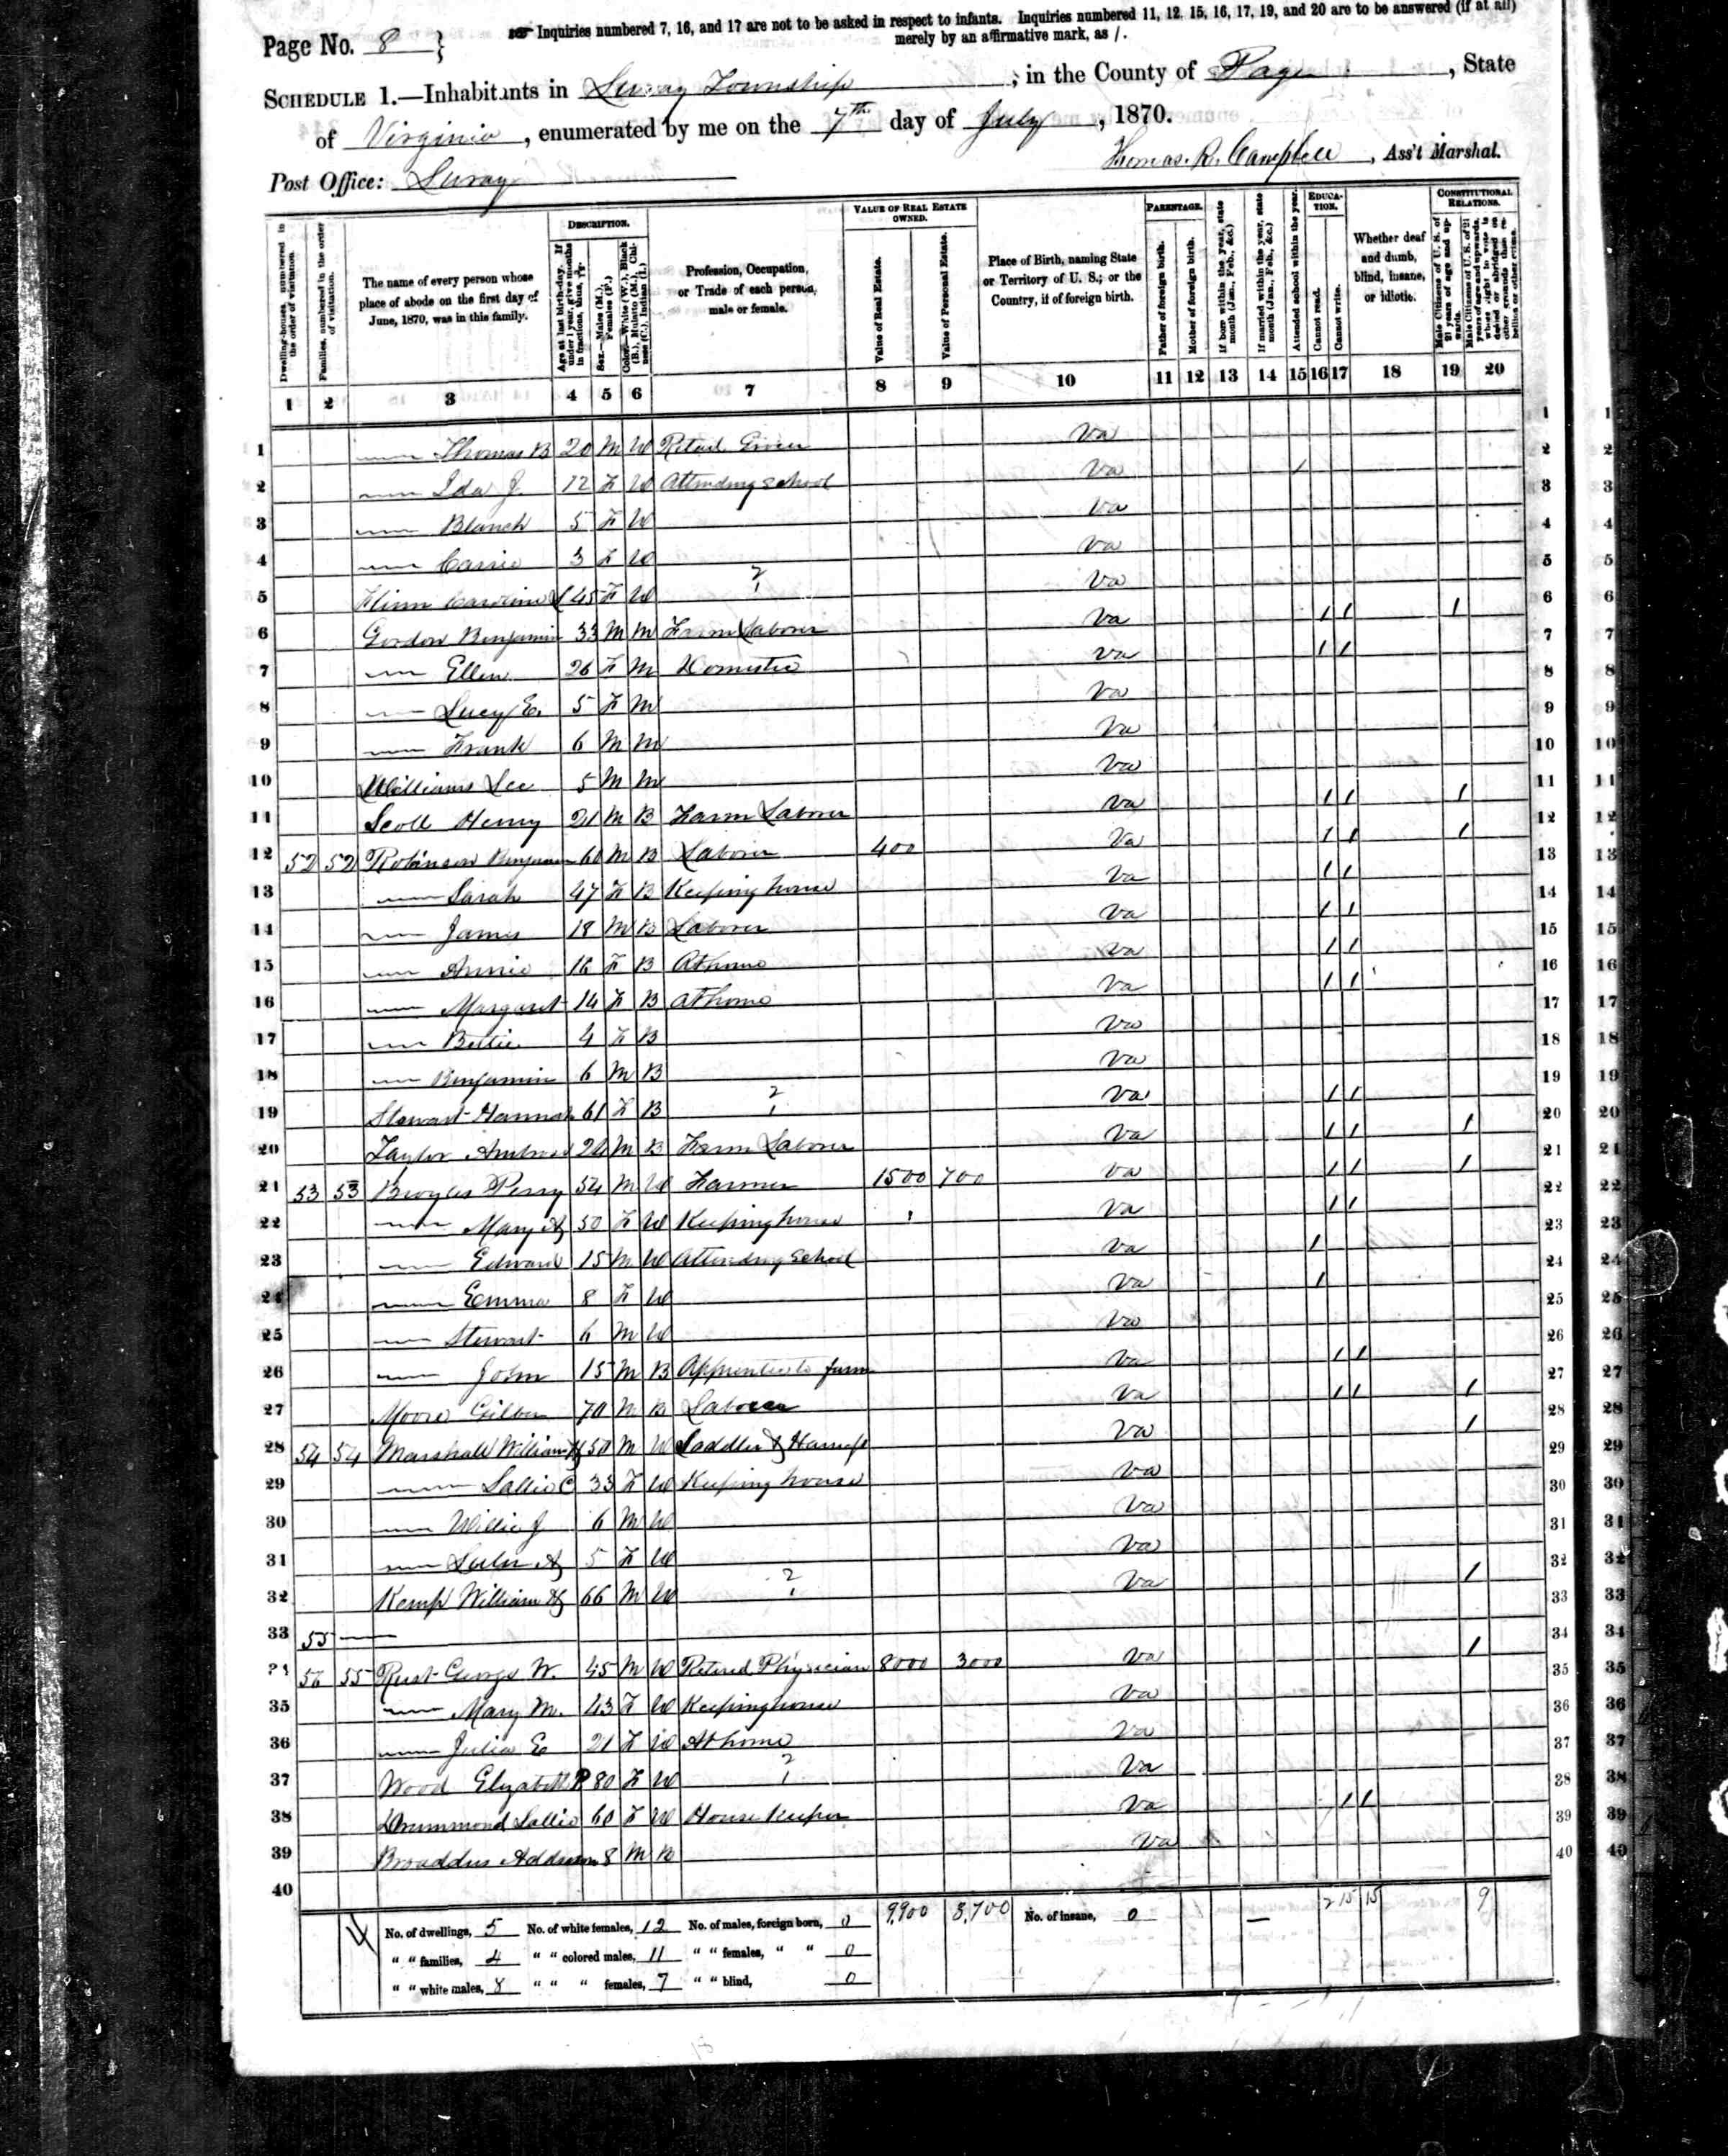 Page No. 8 }
Inquiries numbered 7, 16, and 17 are not to be asked in respect to infants. Inquiries numbered 11, 12, 15, 16, 17, 19, and 20 are to be answered (if at all)
merely by an affirmative mark, as /.
SCHEDULE 1.—Inhabitants in Luray Township, in the County of Page, State
of Virginia, enumerated by me on the 7th day of July, 1870.
Post Office: Luray
Thomas. R. Campbell, Ass't Marshal.
Dwelling-houses, numbered in the order of visitation.
Families, numbered in the order of visitation.
The name of every person whose place of abode on the first day of June, 1870, was in this family.
DESCRIPTION.
Age at last birth-day. If under 1 year, give months in fractions, thus,
Sex.—Males (M.), Females (F.)
Color.—White (W.), Black (B.), Mulatto (M.), Chinese (C.), Indian (I.)
Profession, Occupation, or Trade of each person, male or female.
VALUE OF REAL ESTATE OWNED.
Value of Real Estate.
Value of Personal Estate.
Place of Birth, naming State or Territory of U. S.; or the Country, if of foreign birth.
PARENTAGE.
Father of foreign birth.
Mother of foreign birth.
If born within the year, state month (Jan., Feb., &c.)
If married within the year, state month (Jan., Feb., &c.)
Attended school within the year.
EDUCATION.
Cannot read.
Cannot write.
Whether deaf and dumb, blind, insane, or idiotic.
CONSTITUTIONAL RELATIONS.
Male Citizens of U. S. of 21 years of age and upwards.
Male Citizens of U. S. of 21 years of age and upwards, whose right to vote is denied or abridged on other grounds than rebellion or other crime.
1 2 3 4 5 6 7 8 9 10 11 12 13 14 15 16 17 18 19 20
1 — Thomas B 20 M W Retail Grocer Va 1
2 — Ida J. 12 F W Attending school Va / 2
3 — Blanch 5 F W Va 3
4 — Carrie 3 F W Va 4
5 Flinn Caroline 45 F W ? Va 5
6 Gordon Benjamin 33 M M Farm Laborer Va / / / 6
7 — Ellen 26 F M Domestic Va / / 7
8 — Lucy E. 5 F M Va 8
9 — Frank 6 M M Va 9
10 Williams Lee 5 M M Va 10
11 Scott Henry 21 M B Farm Laborer Va / / / 11
12 52 52 Robinson Benjamin 60 M B Laborer 400 Va / / / 12
13 — Sarah 47 F B Keeping house Va / / 13
14 — James 18 M B Laborer Va / / 14
15 — Annie 16 F B At home Va / / 15
16 — Margaret 14 F B At home Va / / 16
17 — Bettie 4 F B Va 17
18 — Benjamin 6 M B Va 18
19 Stewart Hannah 61 F B ? Va / / 19
20 Taylor Ambrose 24 M B Farm Laborer Va / / / 20
21 53 53 Broyles Perry 54 M W Farmer 1500 700 Va / / / 21
22 — Mary A 50 F W Keeping house Va / / 22
23 — Edward 15 M W Attending School Va / 23
24 — Emma 8 F W Va / 24
25 — Stewart 6 M W Va 25
26 — John 15 M B Apprentice to farm Va / / 26
27 Moore 70 M B Laborer Va / / / 27
28 54 54 Marshall William H 50 M W Saddler & Harness Va / 28
29 — Sallie C 33 F W Keeping house Va 29
30 — Willie J 6 M W Va 30
31 — A 5 F W Va 31
32 Kemp William A 66 M W ? Va / 32
33 55 — 33
34 56 55 Rust George W. 45 M W Retired Physician 8000 3000 Va / 34
35 — Mary M. 43 F W Keeping house Va 35
36 — Julia E 21 F W At home Va 36
37 Wood Elizabeth P 80 F W ? Va 37
38 Drummond Sallie 60 F W House Keeper Va / / 38
39 Broaddus Addison 8 M B Va 39
40 40
No. of dwellings, 5 No. of white females, 12 No. of males, foreign born, 0 9,900 3,700 No. of insane, 0 — 2 15 15 9
" " families, 4 " " colored males, 11 " " females, " " 0
" " white males, 8 " " " females, 7 " " blind, 0